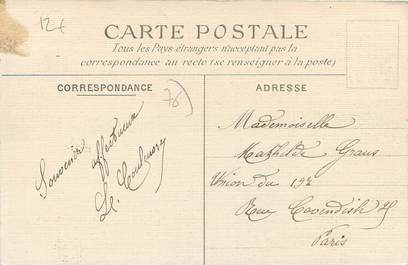 12f
CARTE POSTALE
Tous les Pays étrangers n'acceptant pas la
correspondance au recto (se renseigner à la poste)
CORRESPONDANCE
ADRESSE
78
Souvenir affectueux
Mademoiselle
Mathilde
Union du 19e
Rue Cavendish 25
Paris